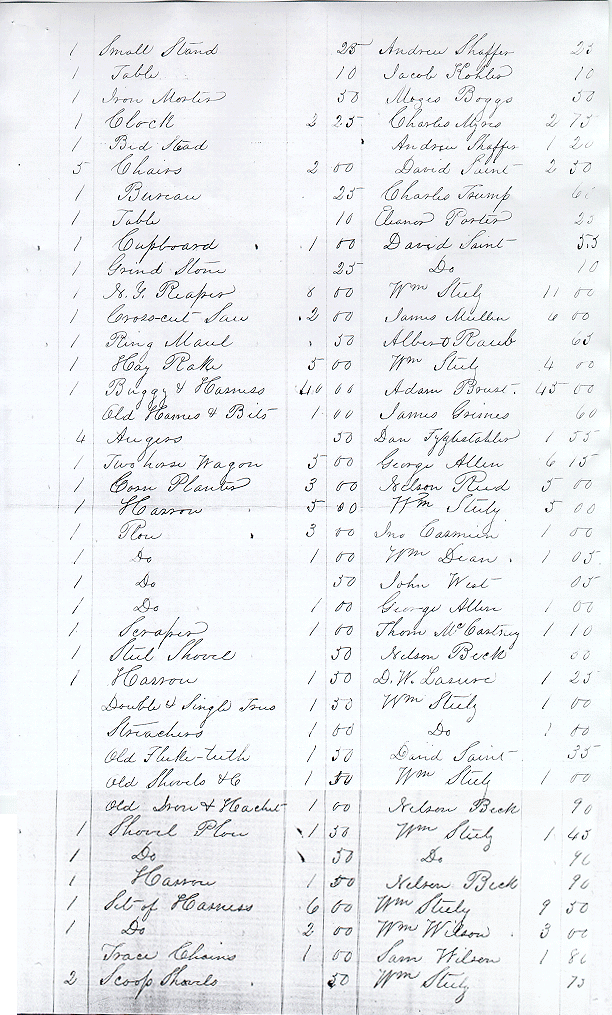 1 Small Stand 25 Andrew Shaffer 25
1 Table 10 Jacob Kohler 10
1 Iron Morter 50 Moses Boggs 50
1 Clock 2 25 Charles Myres 2 75
1 Bed Stead Andrew Shaffer 1 20
5 Chairs 2 00 David Saint 2 50
1 Bureau 25 Charles Trump
1 Table 10 Eleanor Porter 25
1 Cupboard 1 00 David Saint 55
1 Grind Stone 25 Do 10
1 N.Y. Reaper 8 00 Wm Steely 11 00
1 Cross-cut Saw 2 00 James Mullen 6 00
1 Ring Maul 50 Albert Raub 65
1 Hay Rake 5 00 Wm Steely 4 00
1 Buggy & Harness 40 00 Adam Bruse. 45 00
Old Hames & Bits 1 00 James Grimes 60
4 Augers 50 Dan 1 55
1 Two horse Wagon 5 00 George Allen 6 15
1 Corn Planter 3 00 Nelson Reed 5 00
1 Harrow 5 00 Wm Steely 5 00
1 Plow 3 00 Jno 1 00
1 Do 1 00 Wm Dean. 1 05
1 Do 50 John West 05
1 Do 1 00 George Allen 1 00
1 Scraper 1 00 Thom McCartney 1 10
1 Steel Shovel 50 Nelson Beck
1 Harrow 1 50 D. W. Lasure 1 25
Double & Single Trees 1 50 Wm Steely 1 00
Streachers 1 00 Do 1 00
Old Fluke-teeth 1 50 David Saint 35
Old Shovels &C 1 50 Wm Steely 1 00
Old Iron & Hachet 1 00 Nelson Beck 90
1 Shovel Plow 1 50 Wm Steely 1 45
1 Do 50 Do 90
1 Harrow 1 50 Nelson Beck 90
1 Set of Harness 6 00 Wm Steely 9 50
1 Do 2 00 Wm Wilson. 3 00
Trace Chains 1 00 Sam Wilson 1 80
2 Scoop Shovels 50 Wm Steely 75